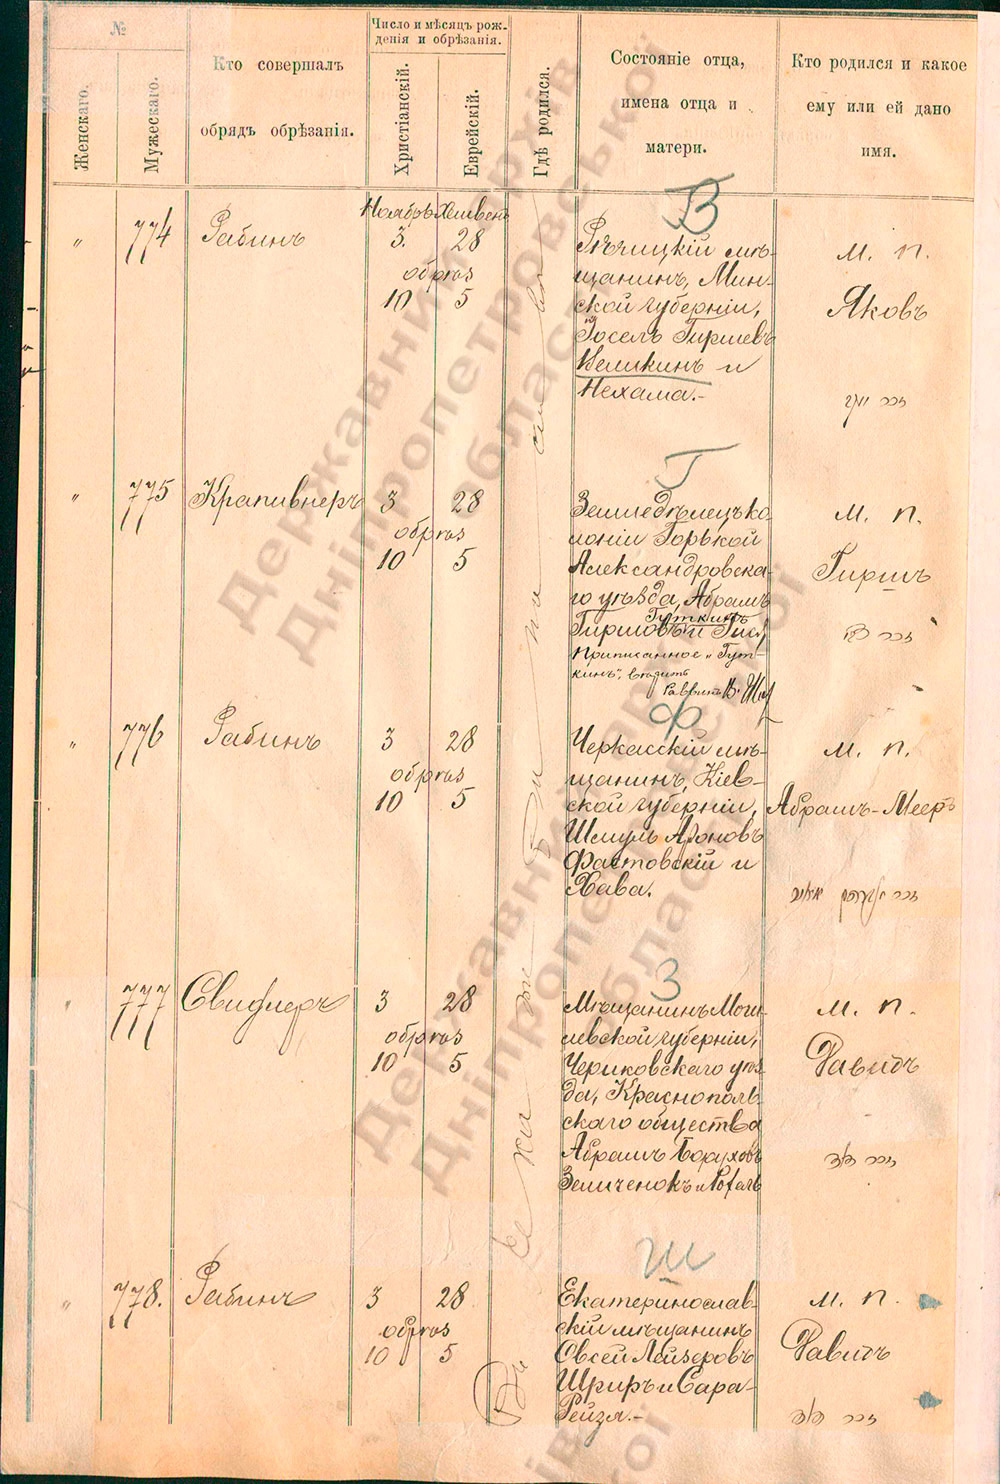 №
Женскаго.
Мужескаго.
Кто совершалъ
обрядъ обрѣзанія.
Число и мѣсяцъ рож-
денія и обрѣзанія.
Христіанскій.
Еврейскій.
Гдѣ родился.
Состояніе отца,
имена отца и
матери.
Кто родился и какое
ему или ей дано
имя.
Ноябрь
В
" 774 Рабинъ 3. 28
обрѣз
10 5
Рѣчицкій мѣ-
щанинъ, Мин-
ской губерніи,
Іосель Гиршевъ
Великинъ и
Нехама.-
м. п.
Яковъ
Г
" 775 Крапивнеръ 3 28
обрѣз
10 5
Земледѣлецъ ко-
лоніи Горькой
Александровска-
го уѣзда, Абрамъ
Гуткинъ
Гиршовъ и
Приписанное „Гут-
кинъ", вѣрить
Раввинъ
м. п.
Гиршъ
Ф
" 776 Рабинъ 3 28
обрѣз
10 5
Черкасскій мѣ-
щанинъ, Кіев-
ской губерніи,
Шмуль Ароновъ
Фастовскій и
Хава.
м. п.
Абрамъ-Мееръ
З
" 777 Свифлеръ 3 28
обрѣз
10 5
Мѣщанинъ Моги-
левской губерніи,
Чериковскаго уѣз-
да, Краснополь-
скаго общества
Абрамъ Боруховъ
Зеличенокъ и
м. п.
Давидъ
Ш
" 778. Рабинъ 3 28
обрѣз
10 5
Екатеринослав-
скій мѣщанинъ
Овсей Лейзеровъ
Шриръ и Сара-
Рейзя.-
м. п.
Давидъ
Державний архів
Дніпропетровської
області
Державний архів
Дніпропетровської
області